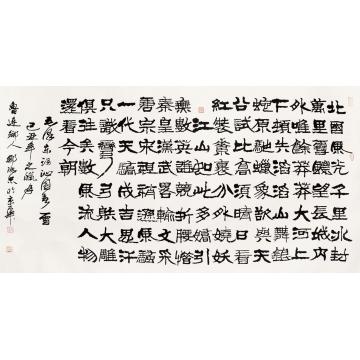 北國風光千里冰封
萬里雪飄望長城內
外惟餘莽莽大河上
下頓失滔滔山舞銀
蛇原馳蠟象欲與天
公試比高須晴日看
紅裝素裹分外妖嬈
江山如此多嬌引
無數英雄競折腰惜
秦皇漢武略輸文采
唐宗宋祖稍遜風騷
一代天驕成吉思汗
只識彎弓射大雕
俱往矣數風流人物
還看今朝
毛澤東詞沁園春雪
己丑年之臘月
鄉人於京華